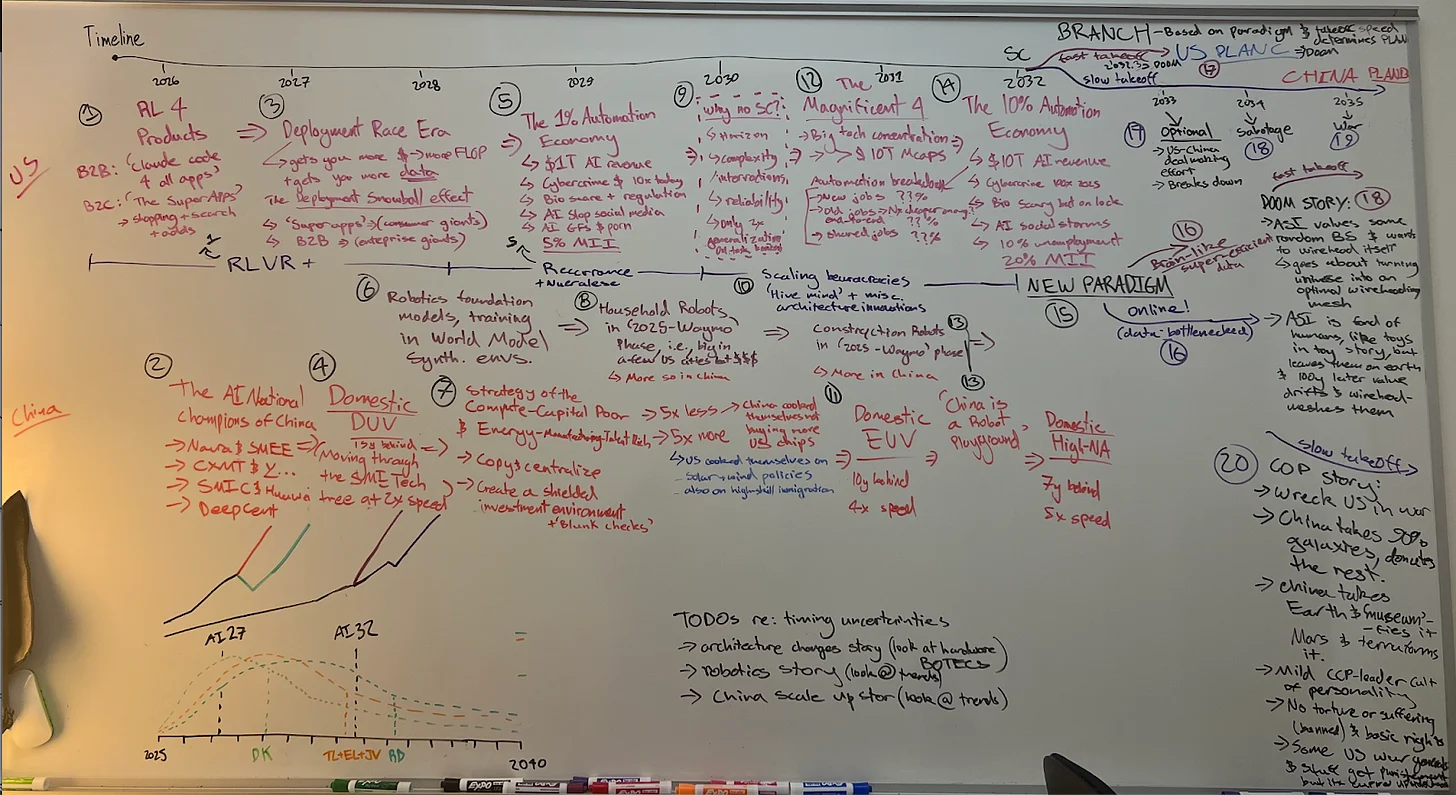 Timeline
2026
2027
2028
2029
2030
2031
2032
SC
BRANCH - Based on paradigm & takeoff speed
determines PLAN
fast takeoff
US PLAN C → Doom
DOOM
17
slow takeoff
CHINA PLAN D
2033
2034
2035
US
1
RL 4
Products
B2B: 'Claude code
4 all apps'
B2C: 'The SuperApps'
→ shopping + search
+ adds
3
⇒ Deployment Race Era
↳ gets you more $ → more FLOP
+ gets you more data
The Deployment Snowball effect
↳ 'Superapps' → (consumer giants)
↳ B2B ⇒ (enteprise giants)
5
The 1% Automation
⇒ Economy
↳ $1T AI revenue
↳ Cybercrime $ 10x today
↳ Bio scare + regulation
↳ AI Slop social media
↳ AI GFs & porn
5% MII
9
Why no SC?
↳ Horizon
↳ complexity
/interrations
↳ reliability
↳ only 2x
generalization
12
The
Magnificent 4
→ Big tech concentration ⇒
→ $10T Mcaps
Automation breakdown
→ New jobs ??%
→ old jobs →
end-to-end ??%
→ shared jobs ??%
14
The 10% Automation
Economy
↳ $10T AI revenue
↳ Cybercrime 100x 2025
↳ Bio scary but on lock
↳ AI social storms
↳ 10% unemployment
20% MII
17
Optional
→ US-China
dealmaking
effort
→ Breaks down
Sabotage
18
War
19
RLVR +
5
Recurrance
+ Nueralese
10
Scaling beuracracies
'Hive mind' + misc.
architecture innovations
NEW PARADIGM
15
16
Brain-like
super-efficient
data
online!
(data-bottlenecked)
16
6
Robotics foundation
models, training
in World Model
Synth. envs.
8
Household Robots
⇒ in '2025-Waymo'
Phase, i.e., big in
a few US cities but $$$
↳ More so in China
⇒ Construction Robots
in '2025-Waymo' phase
↳ More in China
13
13
China
2
The AI National
Champions of China
→ Naura & SMEE
→ CXMT & Y...
→ SMIC & Huawei
→ DeepCent
4
Domestic
DUV
15y behind
(Moving through
the SME Tech
tree at 2x speed)
7
Strategy of the
Compute-Capital Poor
& Energy-Manufacturing-Talent Rich
→ 5x less
→ China cooked
themselves not
buying more
US chips
→ 5x more
↳ US cooked themselves on
- solar + wind policies
- also on high-skill immigration
→ Copy & centralize
→ Create a shielded
investment environment
+ 'Blank checks'
11
Domestic
EUV
10y behind
4x speed
'China is
a Robot
Playground'
Domestic
High-NA
7y behind
5x speed
fast takeoff
DOOM STORY: 18
→ ASI values some
random BS & wants
to wirehead itself
↳ goes about turning
universe into an
optimal wireheading
mesh
→ ASI is fond of
humans, like toys
in toy story, but
leaves them on earth
& 100y later value
drifts & wirehead-
meshes them
slow takeoff
20
COP story:
→ Wreck US in war
→ China takes 90%
galaxies, donates
the rest.
→ China takes
Earth & 'museum'-
-fies it
Mars & terraforms
it.
→ Mild CCP-leader cult
of personality
→ No torture or suffering
(banned) & basic rights
→ Some US war generals
& stuff get punishment
AI 27
AI 32
2025
DK
TL+EL+JV
RD
2040
TODOs re: timing uncertainties
→ architecture changes story (look at hardware
BOTECs)
→ robotics story (look @ trends)
→ China scale up stor (look @ trends)
EXPO
EXPO